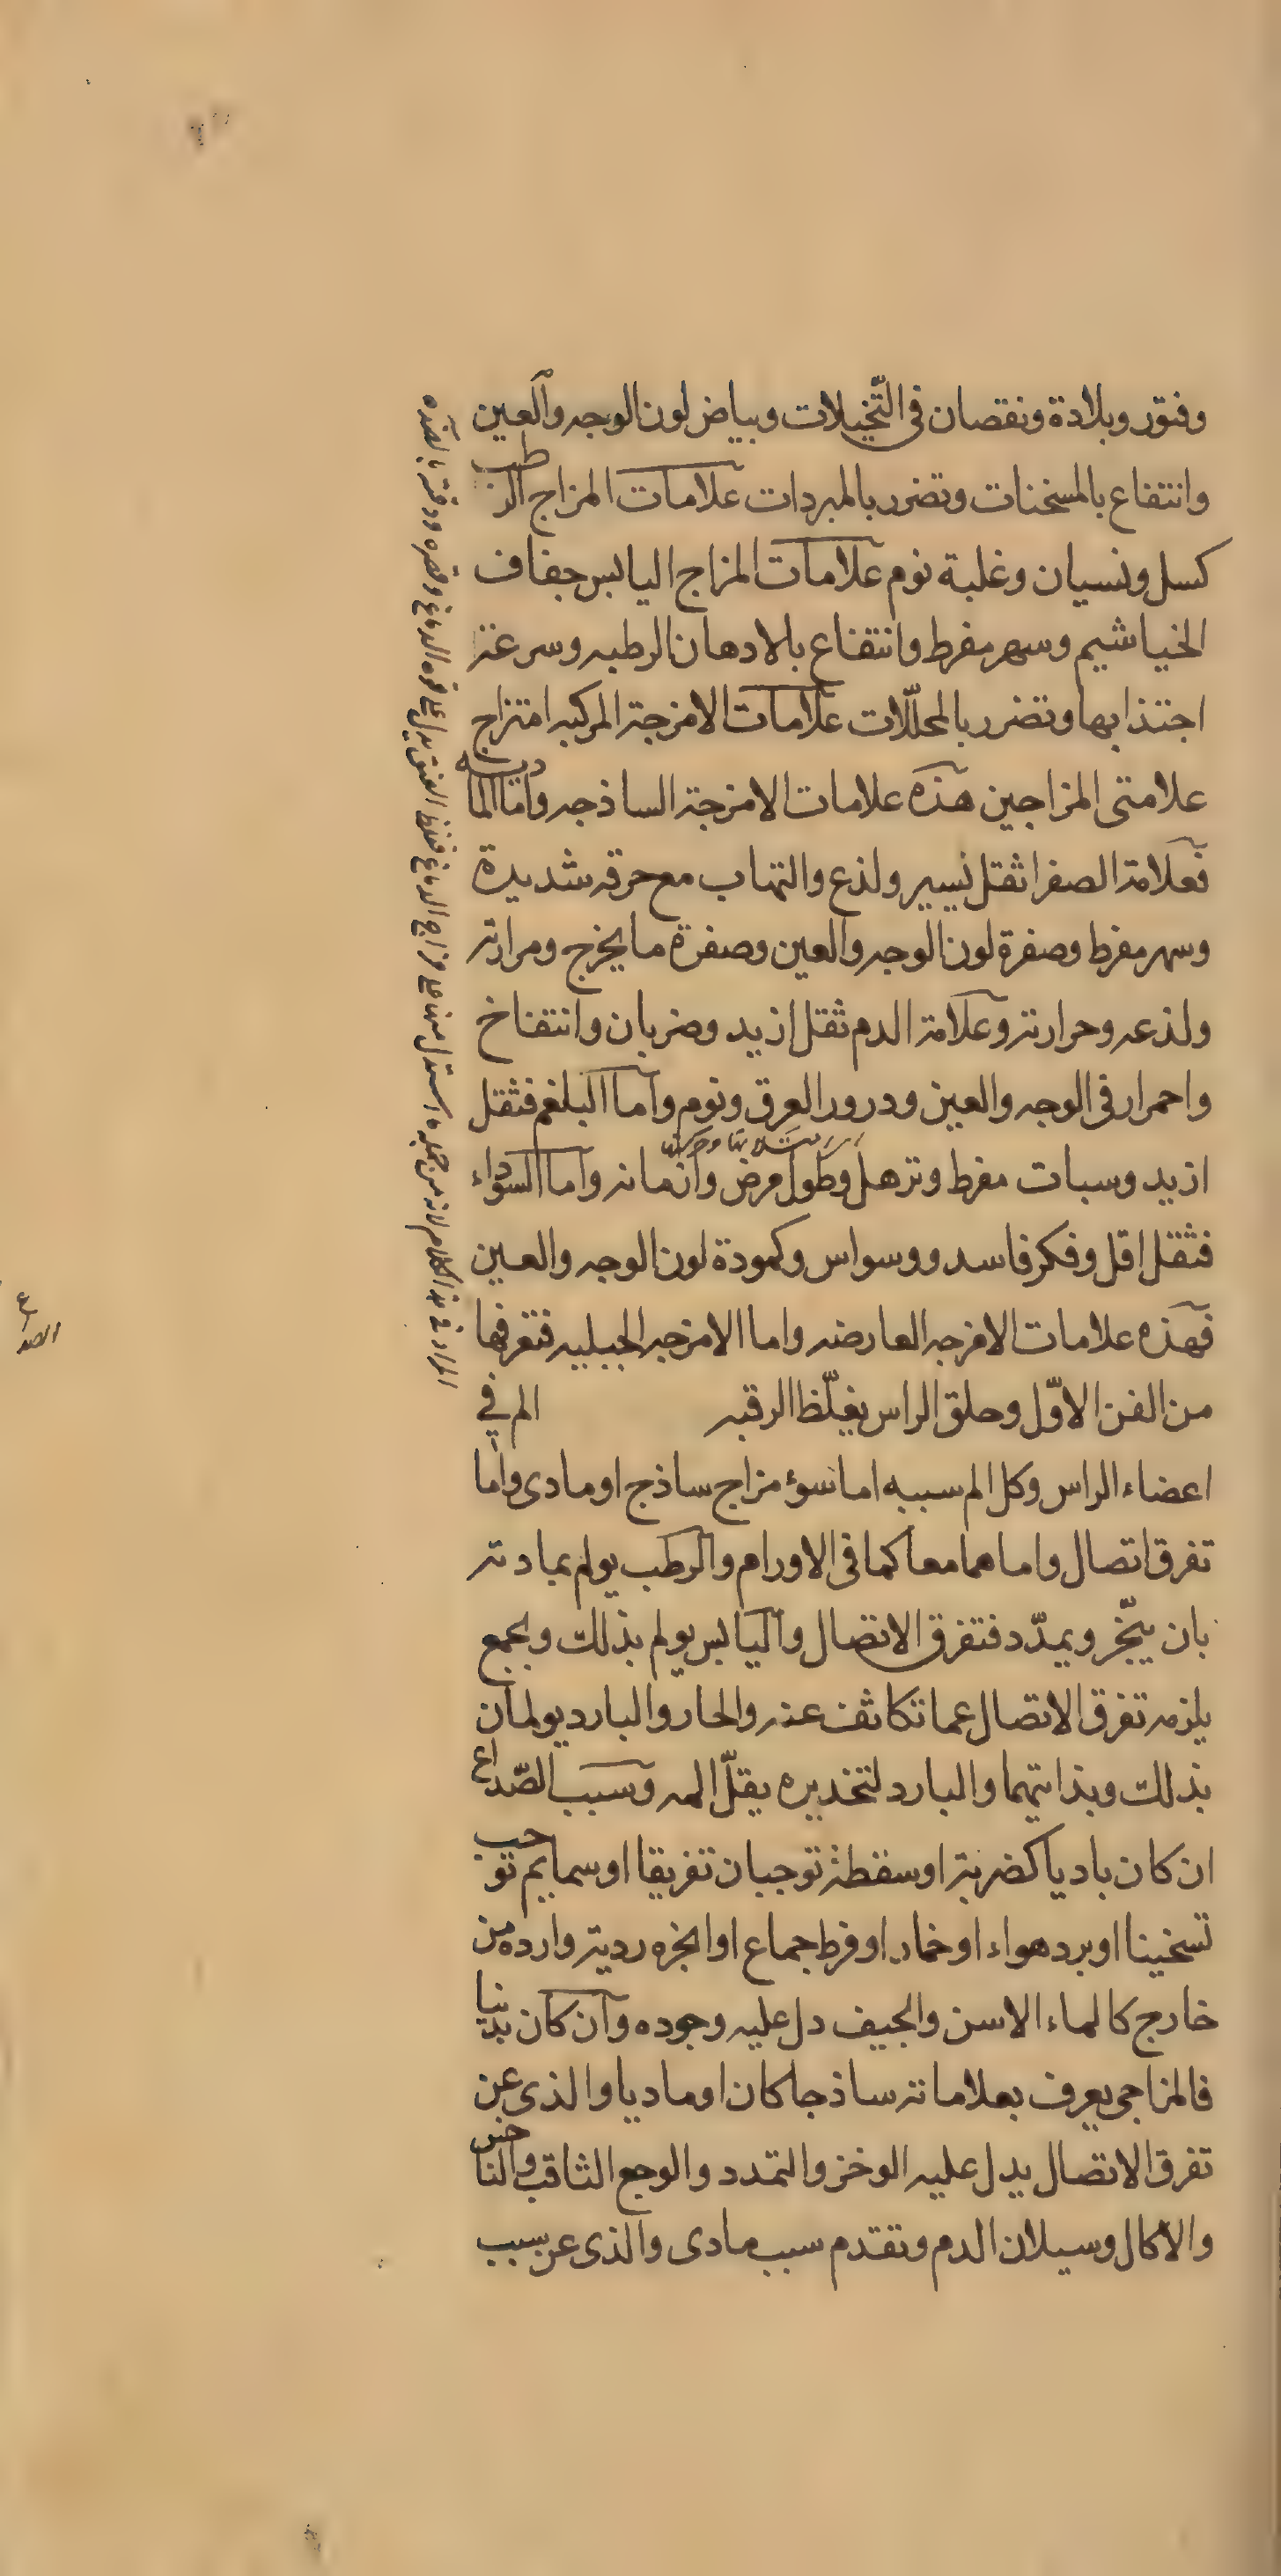 وفتور وبلادة ونقصان فى التّخيلات وبياض لون الوجه والعين
وانتفاع بالمسخنات وتضرر بالمبردات علامات المزاج الرطب
كسل ونسيان وغلبة نوم علامات المزاج اليابس جفاف
الخياشيم وسهر مفرط وانتفاع بالادهان الرطبه وسرعة
اجتذابها وتضرر بالمحلّلات علامات الامزجة المركبه امتزاج
علامتى المزاجين هذه علامات الامزجة الساذجه واما المادية
فعلامة الصفرا ثقل يسير ولذع والتهاب مع حرقه شديدة
وسهر مفرط وصفرة لون الوجه والعين وصفرة ما يخرج ومرارته
ولذعه وحرارته وعلامة الدم ثقل ازيد وضربان وانتفاخ
واحمرار فى الوجه والعين ودرور العرق ونوم واما البلغم فثقل
ازيد وسبات مفرط وترهل وطول مرض وازمانه واما السوداء
فثقل اقل وفكر فاسد ووسواس وكمودة لون الوجه والعين
فهذه علامات الامزجه العارضه واما الامزجه الجبليه فتعرفها
من الفن الاوّل وحلق الراس يغلّظ الرقبه الم في
اعضاء الراس وكل الم سببه اما سوء مزاج ساذج او مادى واما
تفرق اتصال واما هما معا كما فى الاورام والرطب يولم بمادته
بان يبخّر ويمدّد فتفرق الاتصال واليابس يولم بذلك وبجمع
يلزمه تفرق الاتصال عما تكاثف عنه والحار والبارد يولمان
بذلك وبذاتيهما والبارد لتخديره يقلّ المه وسبب الصّداع
ان كان باديا كضربة او سقطة توجبان تفريقا او سمايم توجب
تسخينا او برد هواء او خمار او فرط جماع او ابخره رديته وارده من
خارج كالماء الاسن والجيف دل عليه وجوده وان كان بدنيا
فالمزاجى يعرف بعلاماته ساذجا كان او ماديا والذى عن
تفرق الاتصال يدل عليه الوخز والتمدد والوجع الثاقب والناخس
والاكال وسيلان الدم وتقدم سبب مادى والذى عن سبب
الصداع